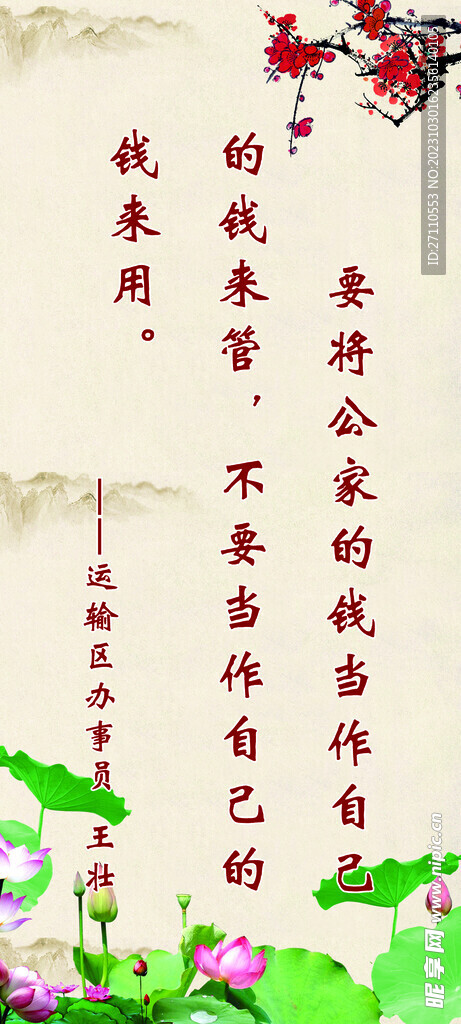 要将公家的钱当作自己
的钱来管，不要当作自己的
钱来用。
——运输区办事员 王壮
ID:27110553 NO:20231030162356140105
昵享网 www.nipic.cn